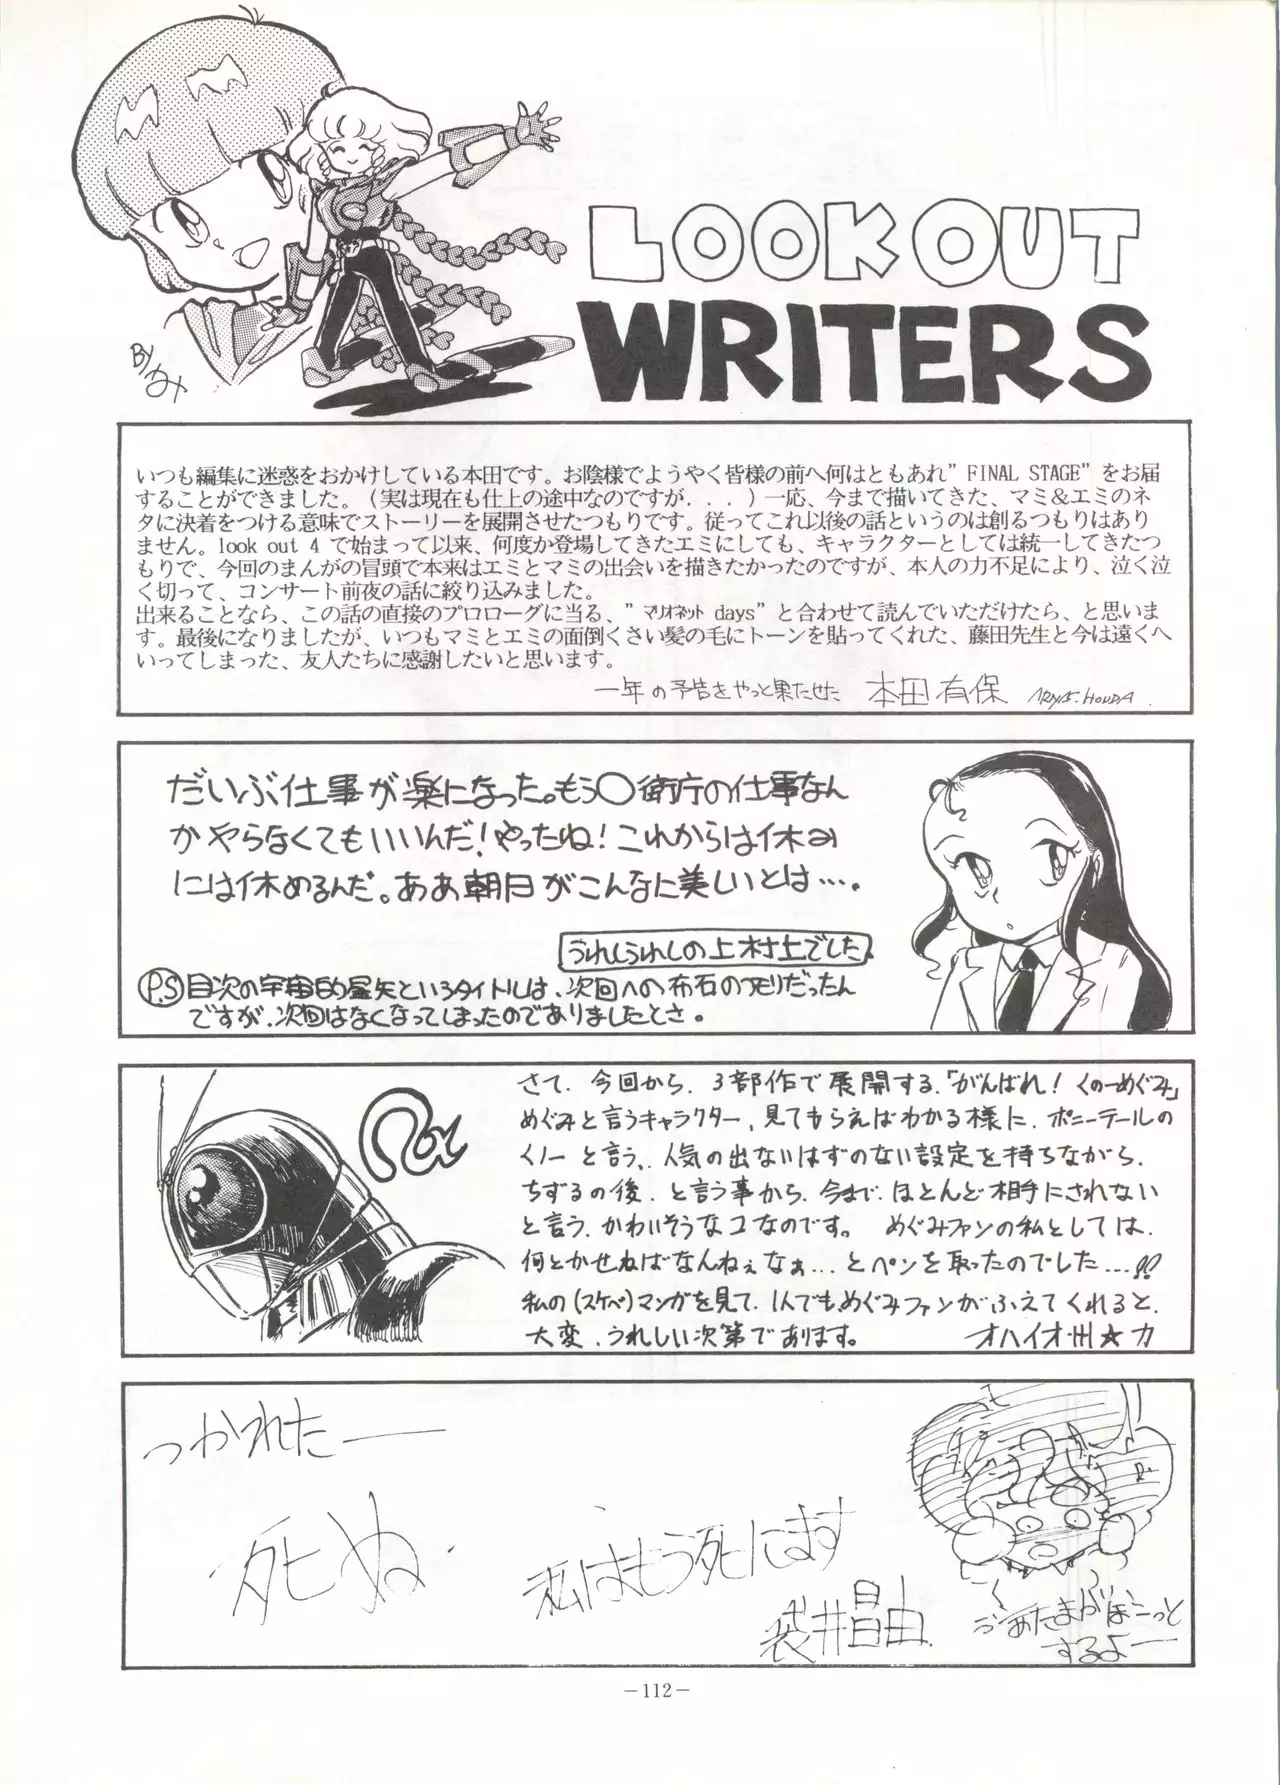 LOOK OUT
WRITERS
By みや
いつも編集に迷惑をおかけしている本田です。お陰様でようやく皆様の前へ何はともあれ”FINAL STAGE”をお届
することができました。(実は現在も仕上の途中なのですが...)一応、今まで描いてきた、マミ&エミのネ
タに決着をつける意味でストーリーを展開させたつもりです。従ってこれ以後の話というのは創るつもりはあり
ません。look out 4 で始まって以来、何度か登場してきたエミにしても、キャラクターとしては統一してきたつ
もりで、今回のまんがの冒頭で本来はエミとマミの出会いを描きたかったのですが、本人の力不足により、泣く泣
く切って、コンサート前夜の話に絞り込みました。
出来ることなら、この話の直接のプロローグに当る、”マリオネット days”と合わせて読んでいただけたら、と思いま
す。最後になりましたが、いつもマミとエミの面倒くさい髪の毛にトーンを貼ってくれた、藤田先生と今は遠くへ
いってしまった、友人たちに感謝したいと思います。
一年の予告をやっと果たせた 本田有保
だいぶ仕事が楽になった。もう〇衛庁の仕事なん
かやらなくてもいいんだ!やったね!これからは休み
には休めるんだ。ああ朝日がこんなに美しいとは…。
うれしうれしの上村上でした
P.S 目次の宇宙的星矢というタイトルは、次回への布石のつもりだったん
ですが、次回はなくなってしまったのでありましたとさ。
さて、今回から、3部作で展開する、「がんばれ!くのーめぐみ」
めぐみと言うキャラクター、見てもらえばわかる様に、ポニーテールの
くノ一と言う、人気の出ないはずのない設定を持ちながら、
ちずるの後、と言う事から、今まで、ほとんど相手にされない
と言う、かわいそうなコなのです。 めぐみファンの私としては、
何とかせねばなんねぇなぁ...とペンを取ったのでした...!!
私の(スケベ)マンガを見て、1人でもめぐみファンがふえてくれると、
大変、うれしい次第であります。 オハイオ州☆力
つかれたー
死ぬ.
私はもう死にます
袋井昌由
あたまがぼーっと
するよー
-112-